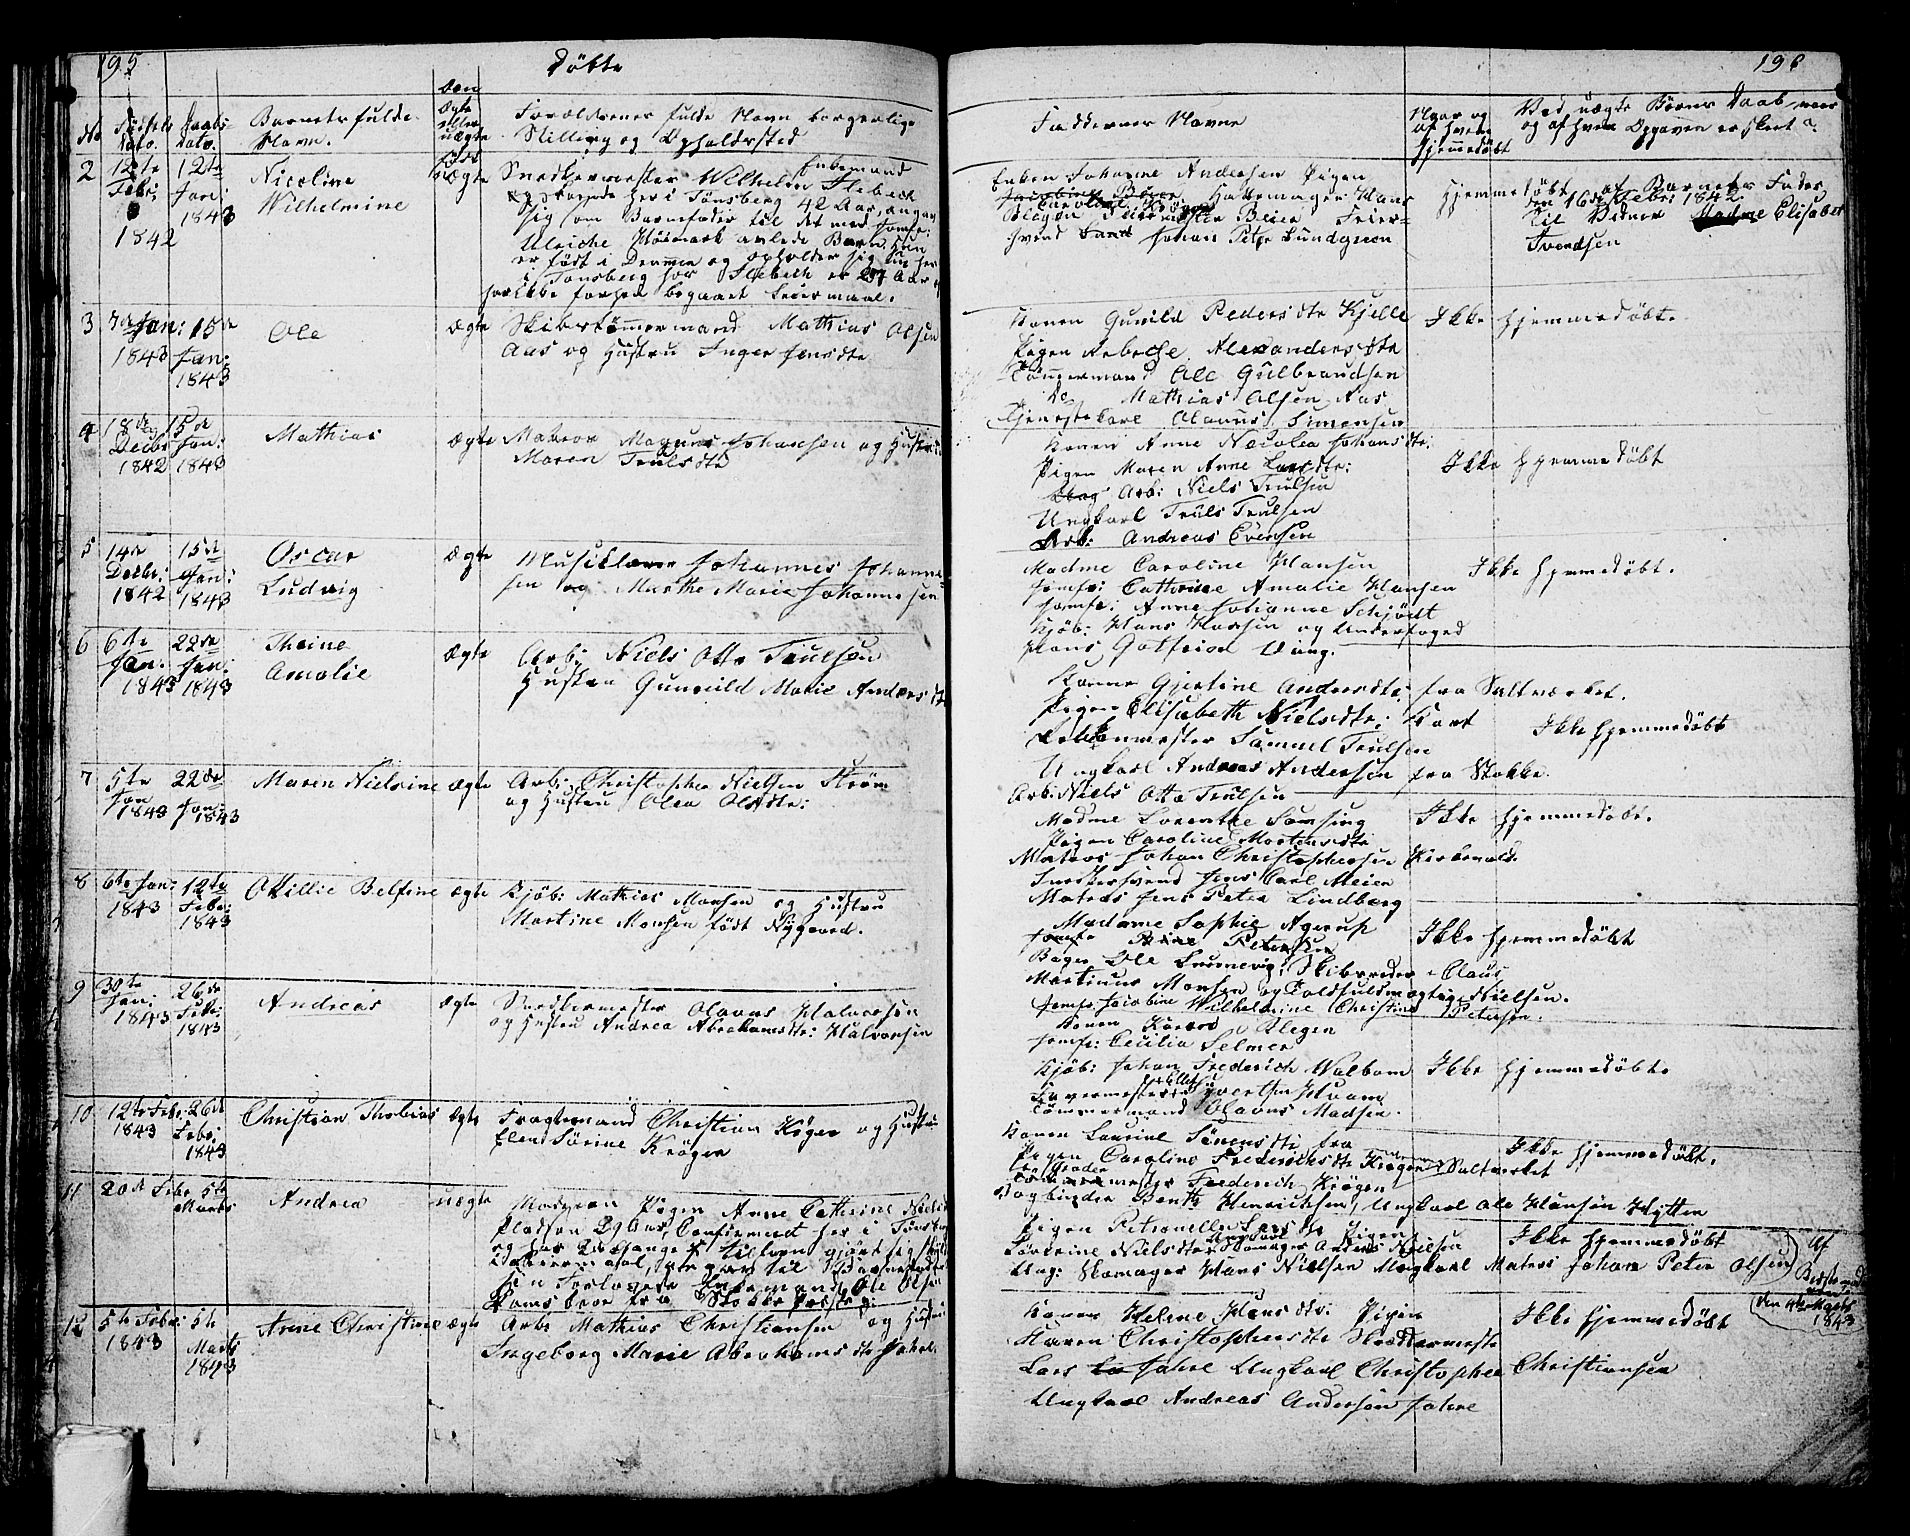 195
Døbte
No
Fødsels Dato.
Daabs Dato.
Barnets fulde Navn.
Om Ægte eller uægte født
Forældrenes fulde Navn borgerlige
Stilling og Opholdssted
2
12te Febr: 1842
12te Jan: 1843
Nicoline
Wilhelmine
uægte
Snedkermester Wilhelm Flebech Enkemand
her i Tønsberg 42 Aar, angav
sig som Barnefader til det med Jomfr:
Ulriche Høismark avlede Barn. Hun
er født i Drammen og opholder sig nu her
i Tønsberg hos Flebech er Aar og
har ikke forhen begaaet Leiermaal.
3
7de Jan: 1843
15de Jan: 1843
Ole
ægte
Skibstømmermand Mathias Olsen
Aas og Hustru Inger Jensdtr
4
18de Decbr 1842
15de Jan: 1843
Mathias
ægte
Matros Magnus Johansen og Hustru
Maren Trulsdtr
5
14de Decbr: 1842
15de Jan: 1843
Oscar
Ludvig
ægte
Musiklærer Johannes Johanne-
sen og Marthe Marie Johannesen
6
6te Jan: 1843
22de Jan: 1843
Theine
Amalie
ægte
Arb: Niels Otto Trulsen
Hustru Gunnild Marie Andersdtr
7
5te Jan 1843
22de Jan: 1843
Maren Nielsine
ægte
Arb: Christopher Nielsen Strøm
og Hustru Olea Olsdtr:
8
6te Jan: 1843
12te Febr: 1843
Ottillie Belfine
ægte
Kjøb: Mathias Monsen og Hustru
Martine Monsen født Nygaard.
9
30te Jan: 1843
26de Febr: 1843
Andreas
ægte
Snedkermester Olavus Halvorsen
og Hustru Andrea Abrahamsdtr: Halvorsen
10
12te Febr: 1843
26de Febr: 1843
Christian Thobias
ægte
Fragtemand Christian Krøger og Hustru
Elen Sørine Krøger
11
20de Febr
5te Marts
Andrea
uægte
Moderen Pigen Anne Cathrine Niels
Pladsen 29 Aar, Confirmeret her i Tønsberg
og har 2de Gange f. tilforn gjort sig skyldig
i Leiermaal, utgav til Barnefader
sin Forlovede Enkemand Ole Olsen
Ramsbroe fra Stokke Præstegj:
12
5te Febr: 1843
5te Marts 1843
Anne Christine
ægte
Arb: Mathias Christiansen og Hustru
Ingeborg Marie Abrahamsdtr Jahre
196
Faddernes Navne
Naar og af hvem Hjemmedøbt
Ved uægte Børns Daab, naar
og af hvem Opgaven er skeet.
Enken Johanne Andersen Pigen
Hattemager Hans
Blegen Beier Feier-
svend Johan Peter Lundgreen
Hjemmedøbt af Barnets Fader
den 16de Febr: 1842.
Til Vidner Madme Elisabet
Svendsen
Konen Gunild Pedersdtr Kjelle
Pigen Rebecke Alexandersdtr
Tømmermand Ole Gulbrandsen
do Mathias Olsen Aas
Tjenestekarl Olavus Simonsen
Ikke hjemmedøbt.
Konen Anne Nicolea Johansdtr:
Pigen Maren Anne Larsdtr:
Arb: Niels Trulsen
Ungkarl Truls Trulsen
Arb: Andreas Evensen
Ikke hjemmedøbt
Madme Caroline Hansen
Jomfr: Cathrine Amalie Hansen
Jomfr: Anne Johanne Schjødt
Kjøb: Hans Hansen og Underfoged
Hans Gotfried Vang.
Ikke hjemmedøbt.
Konen Gjertine Andersdtr: fra Saltværket.
Pigen Elisabeth Nielsdtr:
Samuel Trulsen
Ungkarl Andreas Andersen fra Stokke.
Arb: Niels Otto Trulsen
Ikke hjemmedøbt
Madme Lorentze Samsing
Pigen Caroline Mortensdtr
Matros Johan Christophersen Kirkevold.
Snedkersvend Jens Carl Meier
Matros Jens Peter Lindberg
Ikke hjemmedøbt.
Madame Sophie Agerup
Jomfr Petersen
Bager Ole Lunnevig, Skibsreder Claus
Martinus Monsen og Toldfuldmægtig Nielsen.
Jomfr: Jacobine Wilhelmine Christine Petersen.
Ikke hjemmedøbt
Konen Karen Blegen
Jomfr: Cecilia Selmer
Kjøb: Johan Frederich Walbom
Farvermester Ellef Syvertsen Hvaam
Tømmermand Olavus Madsen.
Ikke hjemmedøbt.
Konen Laurine Sørensdtr fra
Pigen Caroline Frederichsdtr Krøgen Saltværket
Frederich Krøger
Bogbinder Bentz Henrichsen, Ungkarl Ole Hansen Hytten
Ikke hjemmedøbt.
Pigen Petronelle Larsdtr Pigen
Cathrine Nielsdtr Ungkarl Skomager Anders Nielsen
Ung: Skomager Hans Nielsen Ungkarl Matros Johan Peter Olsen
Ikke hjemmedøbt
Af
den 4de Marts 1843
Konen Helene Hansdtr: Pigen
Maren Christophersdtr Skreddermester
Lars Jahre Ungkarl Christopher Christiansen
Ungkarl Andreas Andersen Jahre
Ikke hjemmedøbt